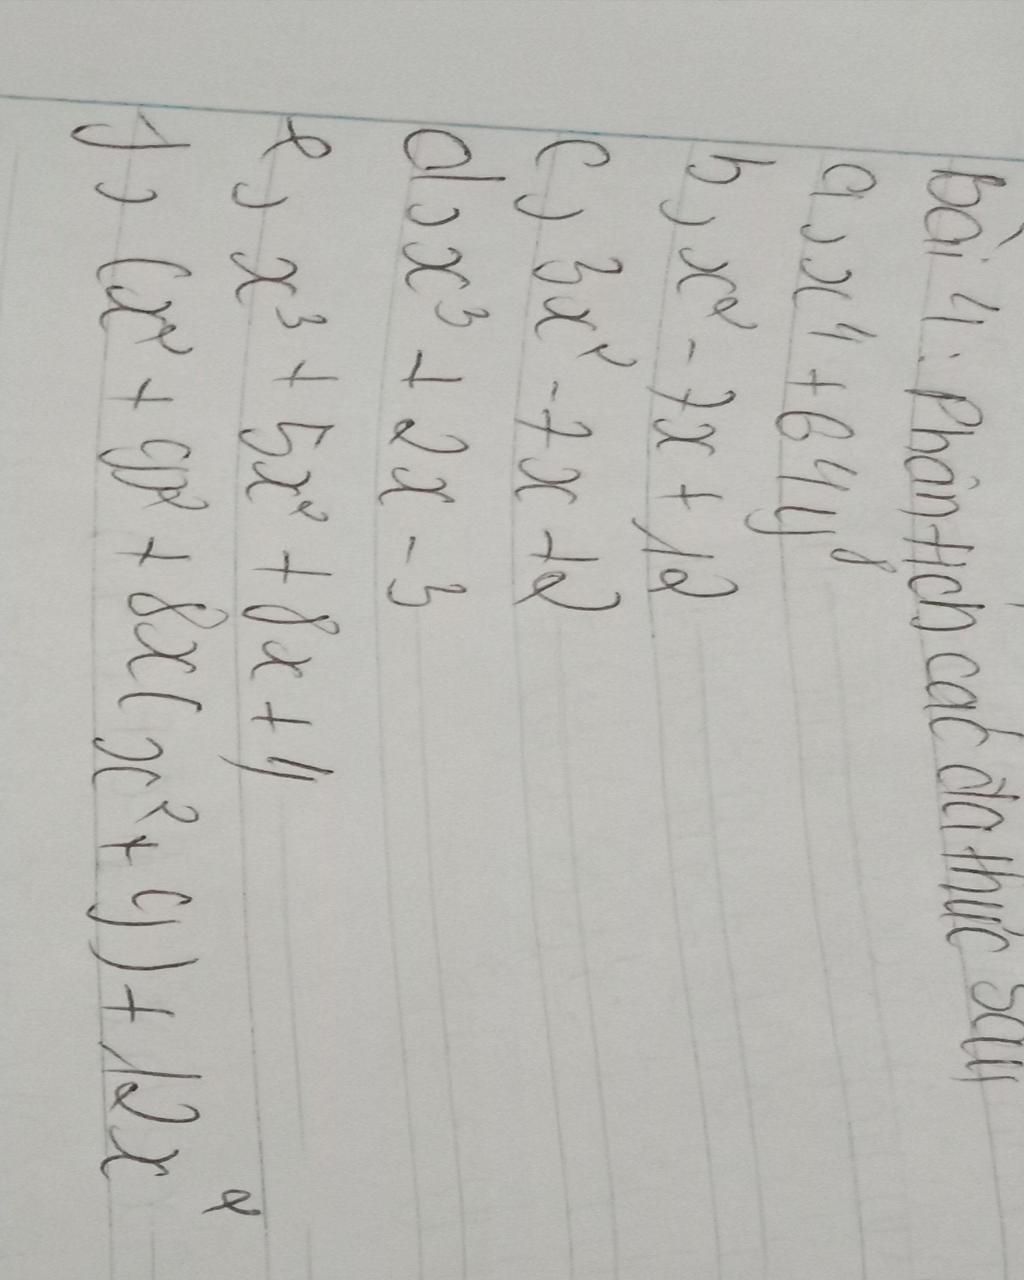 bài 4: Phân tích các đa thức sau
a) x⁴ + 64y⁸
b) x² - 7x + 12
c) 3x² - 7x + 2
d) x³ + 2x - 3
e) x³ + 5x² + 8x + 4
f) (x² + 9)² + 8x(x² + 9) + 12x²